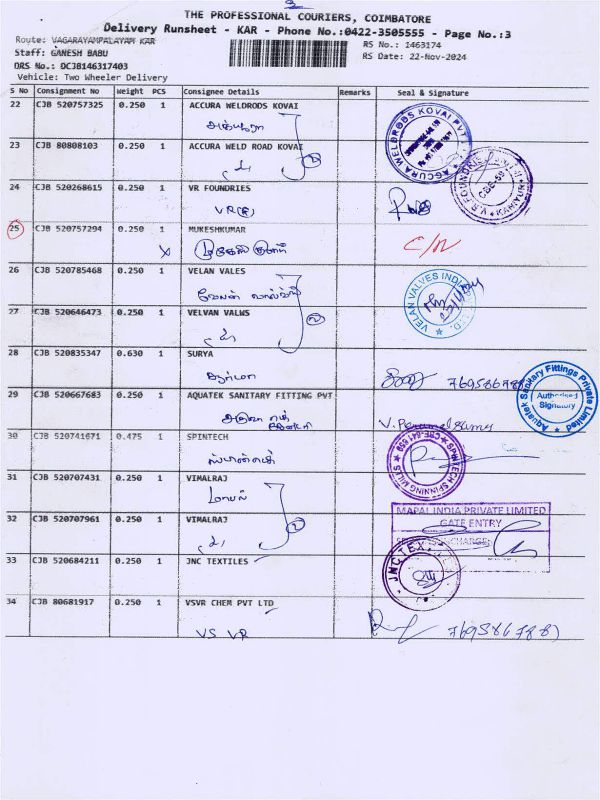 THE PROFESSIONAL COURIERS, COIMBATORE
Delivery Runsheet - KAR - Phone No.:0422-3505555 - Page No.:3
Route: VAGARAYAMPALAYAM KAR
RS No.: 1463174
Staff: GANESH BABU
RS Date: 22-Nov-2024
DRS No.: DCJB146317403
Vehicle: Two Wheeler Delivery
S No Consignment No Weight PCS Consignee Details Remarks Seal & Signature
22 CJB 520757325 0.250 1 ACCURA WELDRODS KOVAI
ACCURA WELDRODS KOVAI PVT
23 CJB 80808103 0.250 1 ACCURA WELD ROAD KOVAI
24 CJB 520268615 0.250 1 VR FOUNDRIES
VR(F)
V.R. FOUNDRIES
CBE-59
25 CJB 520757294 0.250 1 MUKESHKUMAR
X முகேஷ்குமார் C/N
26 CJB 520785468 0.250 1 VELAN VALES
வேலன் வால்வ்ஸ்
VELAN VALVES INDIA LTD.
27 CJB 520646473 0.250 1 VELVAN VALWS
28 CJB 520835347 0.630 1 SURYA
சூர்யா
29 CJB 520667683 0.250 1 AQUATEK SANITARY FITTING PVT
V. Perumal samy
Aquatek Sanitary Fittings Private Limited
Authorised
Signatory
30 CJB 520741671 0.475 1 SPINTECH
ஸ்பின்டெக்
SPINTECH SPINNING MILLS CBE-641 659
31 CJB 520707431 0.250 1 VIMALRAJ
MAPAL INDIA PRIVATE LIMITED
GATE ENTRY
32 CJB 520707961 0.250 1 VIMALRAJ
33 CJB 520684211 0.250 1 JNC TEXTILES
JNC TEX
34 CJB 80681917 0.250 1 VSVR CHEM PVT LTD
VS VR